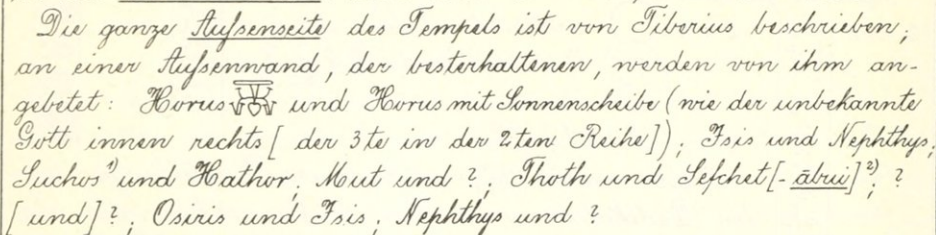 Die ganze Aufsenseite des Tempels ist von Tiberius beschrieben;
an einer Aufsenwand, der besterhaltenen, werden von ihm an-
gebetet: Horus und Horus mit Sonnenscheibe (wie der unbekannte
Gott innen rechts [der 3te in der 2ten Reihe]); Isis und Nephthys;
Suchos¹⁾ und Hathor; Mut und ?; Thoth und Sefchet[-ābui]²⁾; ?
[und] ?; Osiris und Isis; Nephthys und ?